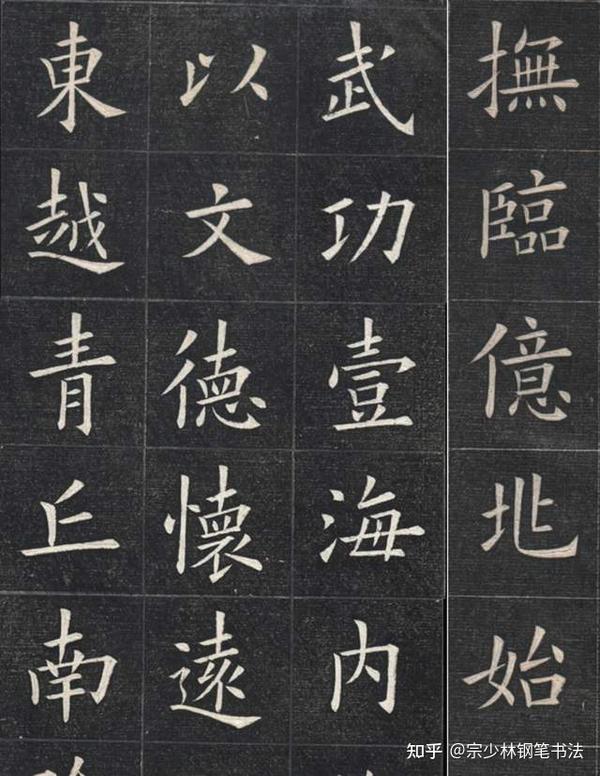 撫臨億兆始
武功壹海内
以文徳懷遠
東越青丘南
知乎 @宗少林钢笔书法